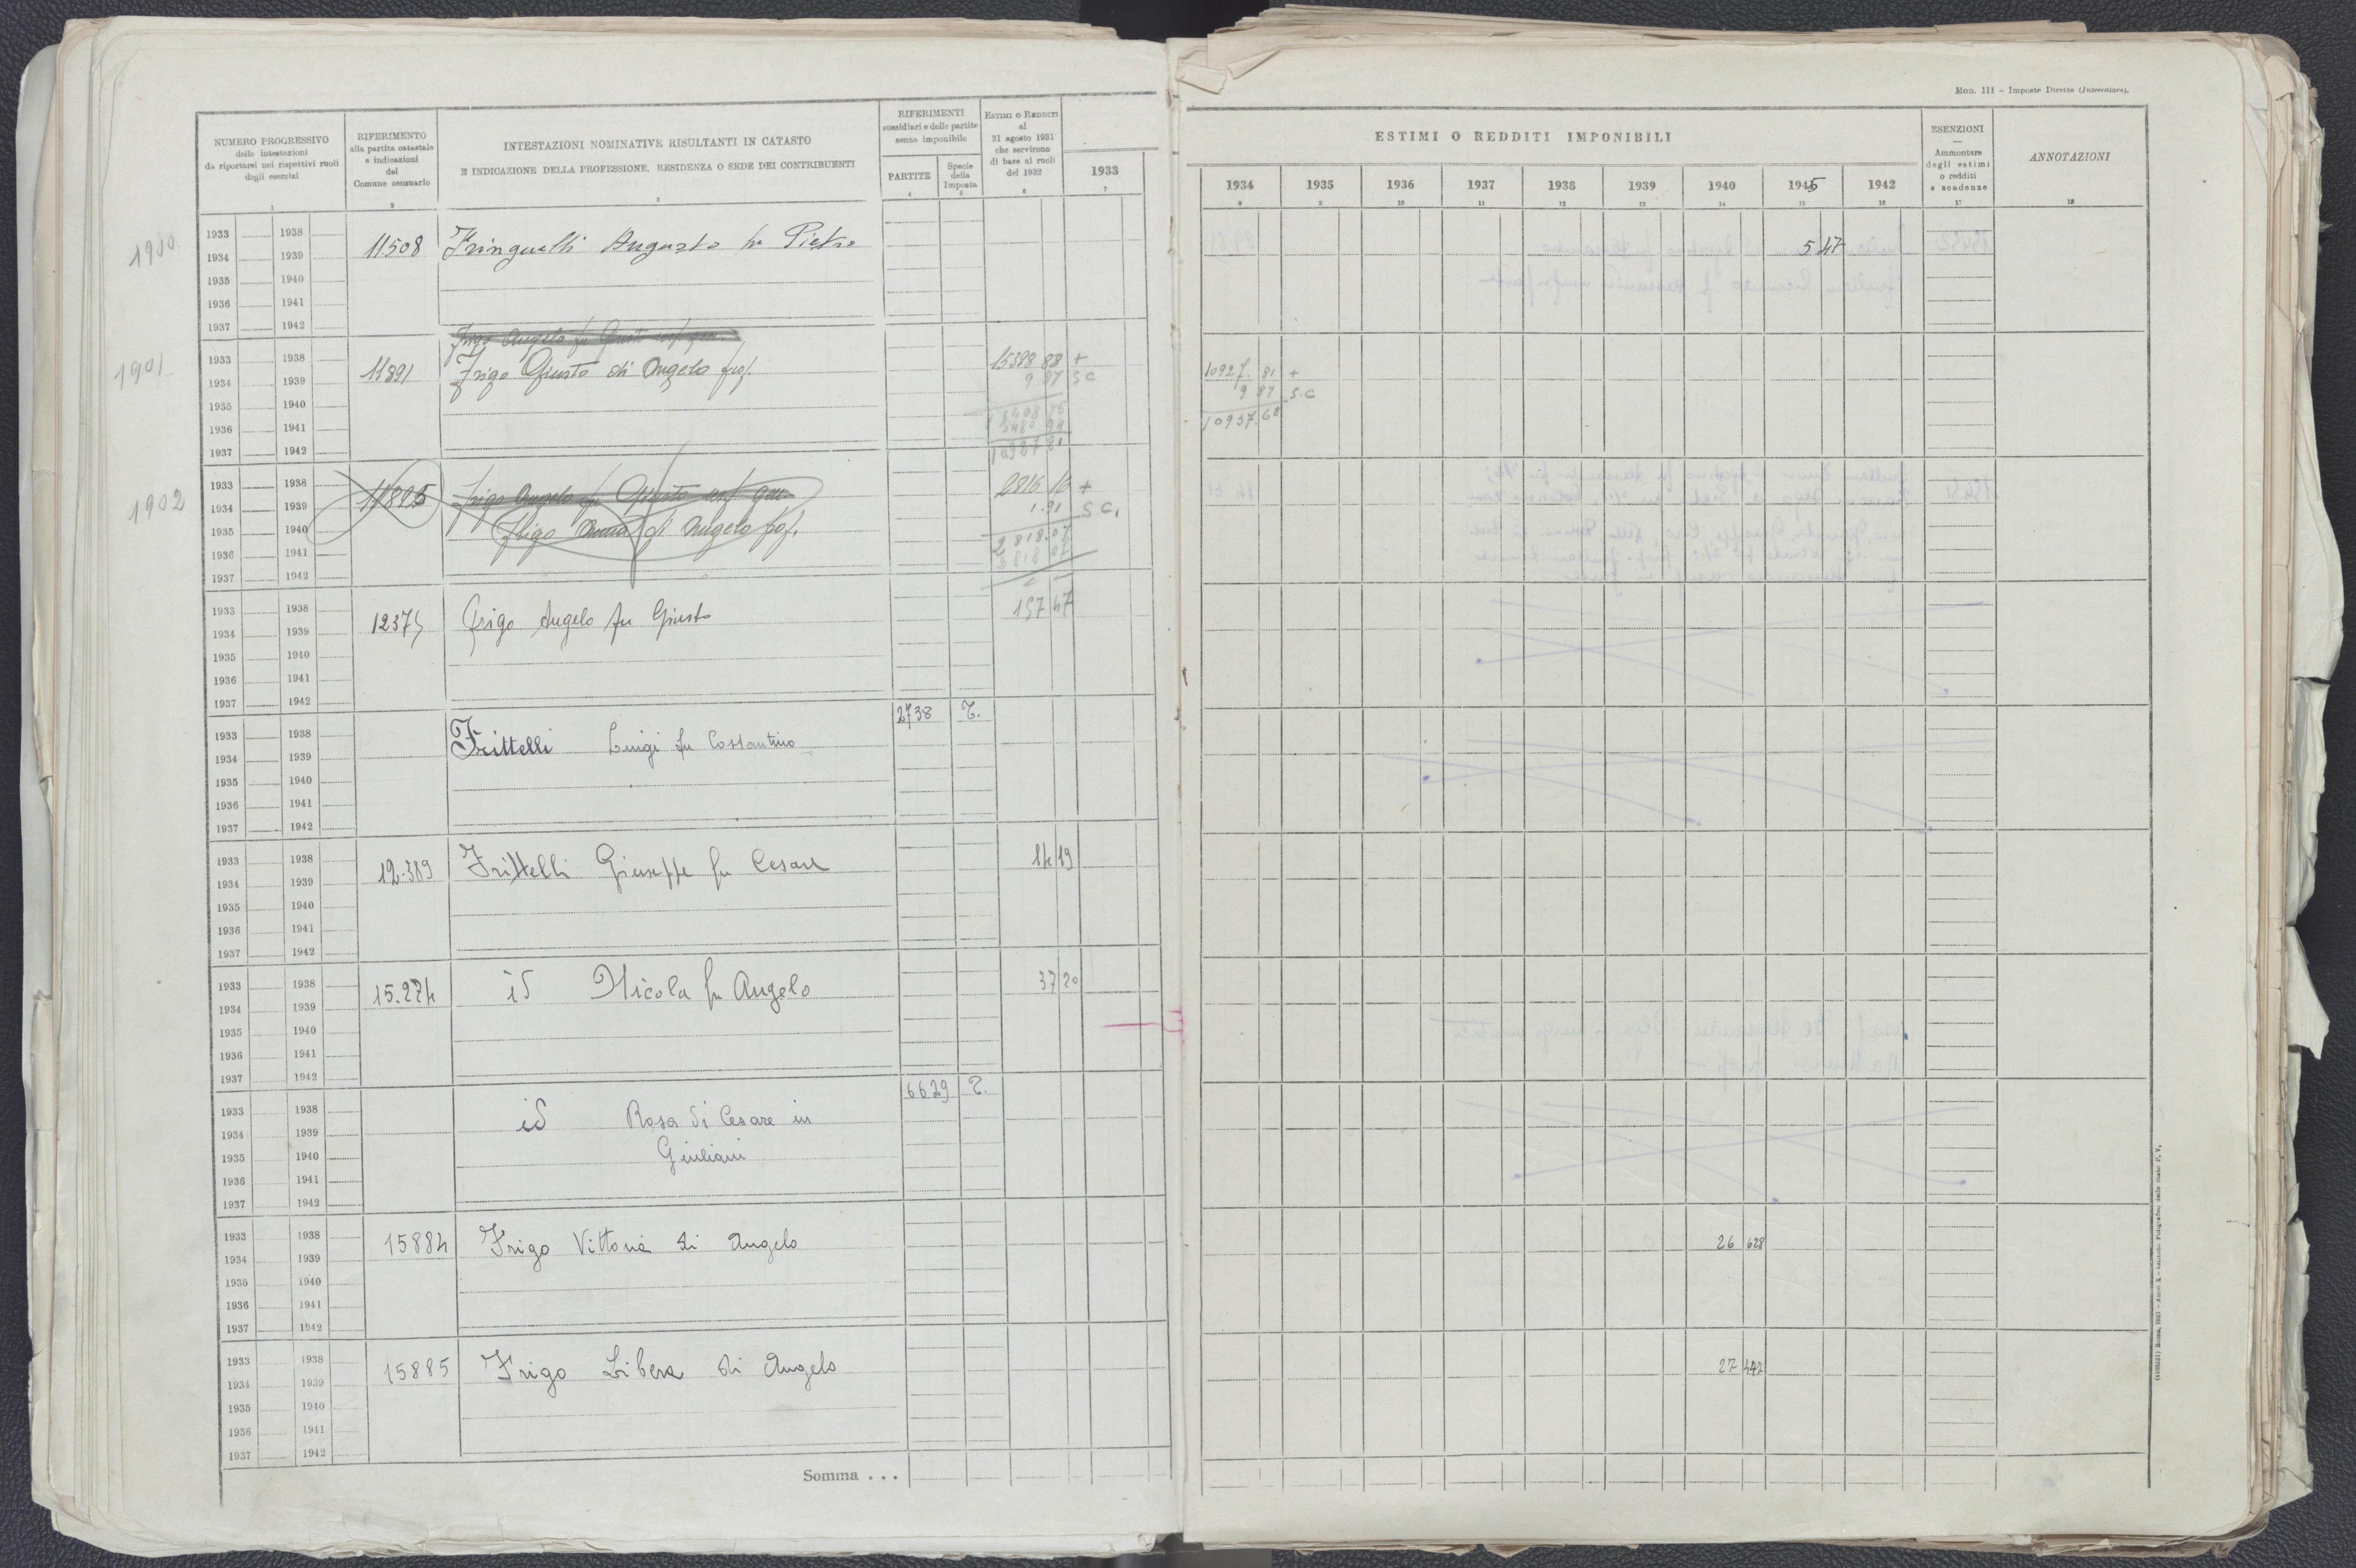 Mod. 111 – Imposte Dirette (Intercalare).
NUMERO PROGRESSIVO
delle intestazioni
da riportarsi nei rispettivi ruoli
degli esercizi
1
RIFERIMENTO
alla partita catastale
e indicazioni
del
Comune censuario
2
INTESTAZIONI NOMINATIVE RISULTANTI IN CATASTO
E INDICAZIONE DELLA PROFESSIONE, RESIDENZA O SEDE DEI CONTRIBUENTI
3
RIFERIMENTI
sussidiari e delle partite
senza imponibile
PARTITE
4
Specie
della
Imposta
5
Estimi o Redditi
al
31 agosto 1931
che servirono
di base ai ruoli
del 1932
6
1933
7
ESTIMI O REDDITI IMPONIBILI
1934 1935 1936 1937 1938 1939 1940 1945 1942
8 9 10 11 12 13 14 15 16
ESENZIONI
—
Ammontare
degli estimi
o redditi
a scadenze
17
ANNOTAZIONI
18
1900
1933 1938
1934 1939
1935 1940
1936 1941
1937 1942
11508 Fringuelli Augusto fu Pietro
5 47
1901
1933 1938
1934 1939
1935 1940
1936 1941
1937 1942
Frigo Angelo fu Giusto usf. gen.
11891 Frigo Giusto di Angelo prof.
15398 88 +
9 87 S C
10927 81
10927. 81 +
9 87 S.C
10937 68
1902
1933 1938
1934 1939
1935 1940
1936 1941
1937 1942
11895 Frigo Angelo fu Giusto usf gen.
Frigo Anna di Angelo pof.
2816 16 +
1.91 S C.
2818.07
2818 07
1933 1938
1934 1939
1935 1940
1936 1941
1937 1942
12375 Frigo Angelo fu Giusto
157 47
1933 1938
1934 1939
1935 1940
1936 1941
1937 1942
Frittelli Luigi fu Costantino
2738 T.
1933 1938
1934 1939
1935 1940
1936 1941
1937 1942
12.389 Frittelli Giuseppe fu Cesare
14 19
1933 1938
1934 1939
1935 1940
1936 1941
1937 1942
15.274 id Nicola fu Angelo
37 20
1933 1938
1934 1939
1935 1940
1936 1941
1937 1942
id Rosa di Cesare in
Giuliani
6629 T.
1933 1938
1934 1939
1935 1940
1936 1941
1937 1942
15884 Frigo Vittoria di Angelo
26 628
1933 1938
1934 1939
1935 1940
1936 1941
1937 1942
15885 Frigo Libera di Angelo
27 442
Somma . . .